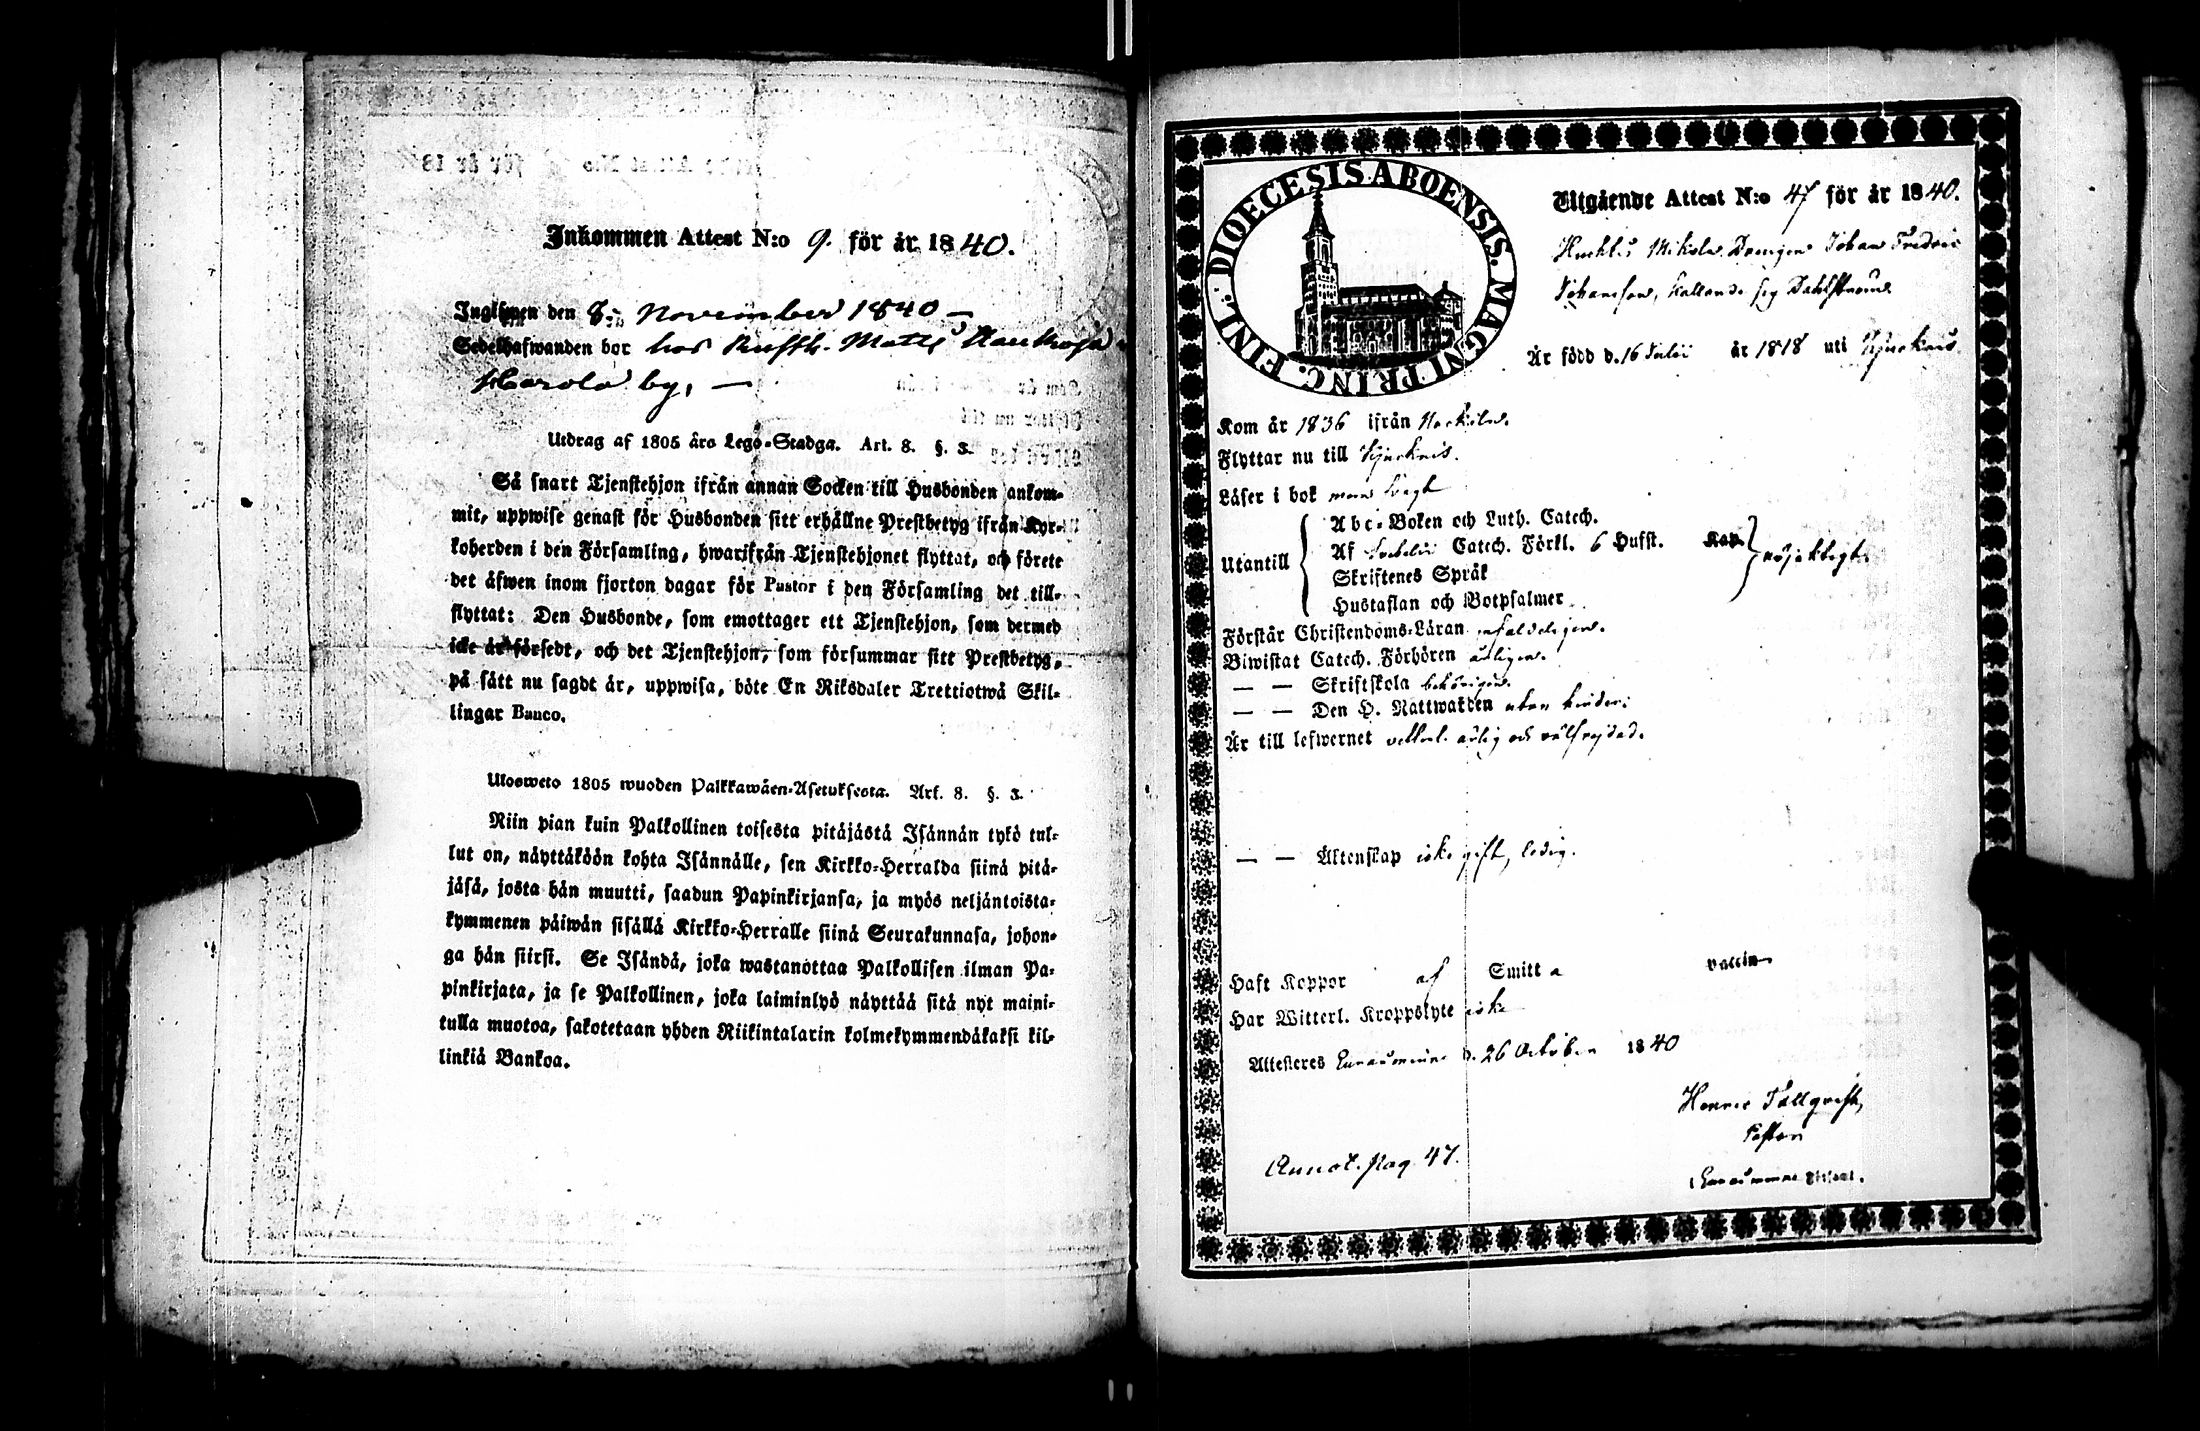 Inkommen Attest N:o 9. för år 1840.
Inglemen den 8de November 1840 —
Sedelhafwanden bor hos Rusth. Matts
Harola by, —
Utdrag af 1805 års Lego-Stadga. Art. 8. §. 3.
Så snart Tjenstehjon ifrån annan Socken till Husbonden ankom-
mit, uppwise genast för Husbonden sitt erhållne Prestbetyg ifrån Kyr-
koherden i den Församling, hwarifrån Tjenstehjonet flyttat, och förete
det äfwen inom fjorton dagar för Pastor i den Församling det till-
flyttat: Den Husbonde, som emottager ett Tjenstehjon, som dermed
icke är försedt, och det Tjenstehjon, som försummar sitt Prestbetyg,
på sätt nu sagdt är, uppwisa, böte En Riksdaler Trettiotwå Skil-
lingar Banco.
Ulosweto 1805 wuoden Palkkawäen-Asetuksesta. Art. 8. §. 3.
Niin pian kuin Palkollinen toisesta pitäjästä Isännän tykö tul-
lut on, näyttäköön kohta Isännälle, sen Kirkko-Herralda siinä pitä-
jäsä, josta hän muutti, saadun Papinkirjansa, ja myös neljäntoista-
kymmenen päiwän sisällä Kirkko-Herralle siinä Seurakunnasa, johon-
ga hän siirsi. Se Isändä, joka wastanottaa Palkollisen ilman Pa-
pinkirjata, ja se Palkollinen, joka laiminlyö näyttää sitä nyt maini-
tulla muotoa, sakotetaan yhden Riikintalarin kolmekymmendäkaksi kil-
linkiä Bankoa.
DIOECESIS ABOENSIS. MAGNI PRINC. FINL.
Utgående Attest N:o 47 för år 1840.
Mikola Drengen Johan Fredric
Johansson, kallande sig Dahlström
Är född d. 16 Julii år 1818 uti Kjuckais
Kom år 1836 ifrån Nackila.
Flyttar nu till Kjuckais.
Läser i bok
Utantill
Abc-Boken och Luth. Catech.
Af Svebelii Catech. Förkl. 6 Hufst. Kap.
Skriftenes Språk
Hustaflan och Botpsalmer
nöjaktigt.
Förstår Christendoms-Läran enfaldeligen.
Biwistat Catech. Förhören årligen.
— — Skriftskola behörigen.
— — Den H. Nattwarden utan hinder.
Är till lefwernet ärlig och välfrejdad.
— — Äktenskap icke gift, ledig.
Haft Koppor af Smitta vaccin
Har Witterl. Kroppslyte icke
Attesteres Euraåminne d. 26 October 1840
Henric Tallqvist,
Pastor
Euraåminne
Annot. pag 47.